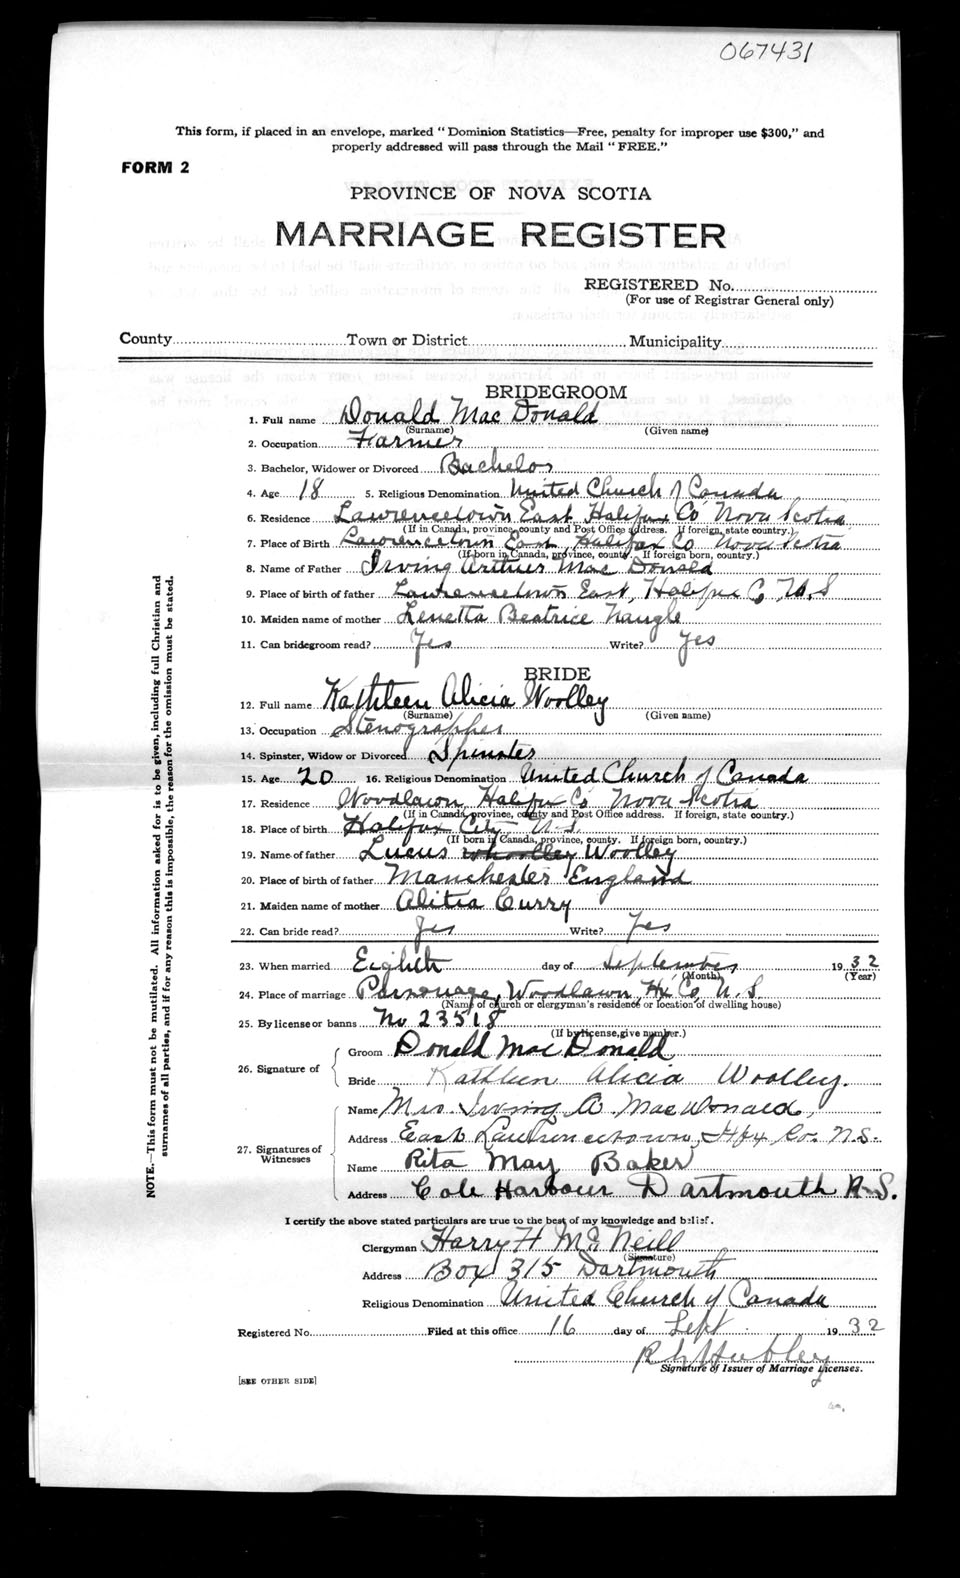 067431
This form, if placed in an envelope, marked "Dominion Statistics—Free, penalty for improper use $300," and
properly addressed will pass through the Mail "FREE."
FORM 2
PROVINCE OF NOVA SCOTIA
MARRIAGE REGISTER
REGISTERED No.
(For use of Registrar General only)
County Town or District Municipality
BRIDEGROOM
1. Full name Donald Mac Donald
(Surname) (Given name)
2. Occupation Farmer
3. Bachelor, Widower or Divorced Bachelor
4. Age 18 5. Religious Denomination United Church of Canada
6. Residence Lawrencetown East, Halifax Co Nova Scotia
(If in Canada, province, county and Post Office address. If foreign, state country.)
7. Place of Birth Lawrencetown East, Halifax Co Nova Scotia
(If born in Canada, province, county. If foreign born, country.)
8. Name of Father Irving Arthur Mac Donald
9. Place of birth of father Lawrencetown East, Halifax Co, N.S
10. Maiden name of mother Lenetta Beatrice Naugle
11. Can bridegroom read? Yes Write? Yes
BRIDE
12. Full name Kathleen Alicia Woolley
(Surname) (Given name)
13. Occupation Stenographer
14. Spinster, Widow or Divorced Spinster
15. Age 20 16. Religious Denomination United Church of Canada
17. Residence Woodlawn, Halifax Co Nova Scotia
(If in Canada, province, county and Post Office address. If foreign, state country.)
18. Place of birth Halifax City N.S.
(If born in Canada, province, county. If foreign born, country.)
19. Name of father Lucus Woolley
20. Place of birth of father Manchester England
21. Maiden name of mother Alitia Curry
22. Can bride read? Yes Write? Yes
23. When married Eighth day of September 1932
(Month) (Year)
24. Place of marriage Parsonage, Woodlawn, Hx Co N.S.
(Name of church or clergyman's residence or location of dwelling house)
25. By license or banns No 23518
(If by license, give number.)
26. Signature of
Groom Donald MacDonald
Bride Kathleen Alicia Woolley.
27. Signatures of Witnesses
Name Mrs. Irving A. MacDonald,
Address East Lawrencetown, Hfx Co. N.S.
Name Rita May Baker
Address Cole Harbour Dartmouth N.S.
I certify the above stated particulars are true to the best of my knowledge and belief.
Clergyman Harry H McNeill
(Signature)
Address Box 315 Dartmouth
Religious Denomination United Church of Canada
Registered No. Filed at this office 16 day of Sept. 1932
Hubley
Signature of Issuer of Marriage Licenses.
[SEE OTHER SIDE]
NOTE.—This form must not be mutilated. All information asked for is to be given, including full Christian and
surnames of all parties, and if for any reason this is impossible, the reason for the omission must be stated.